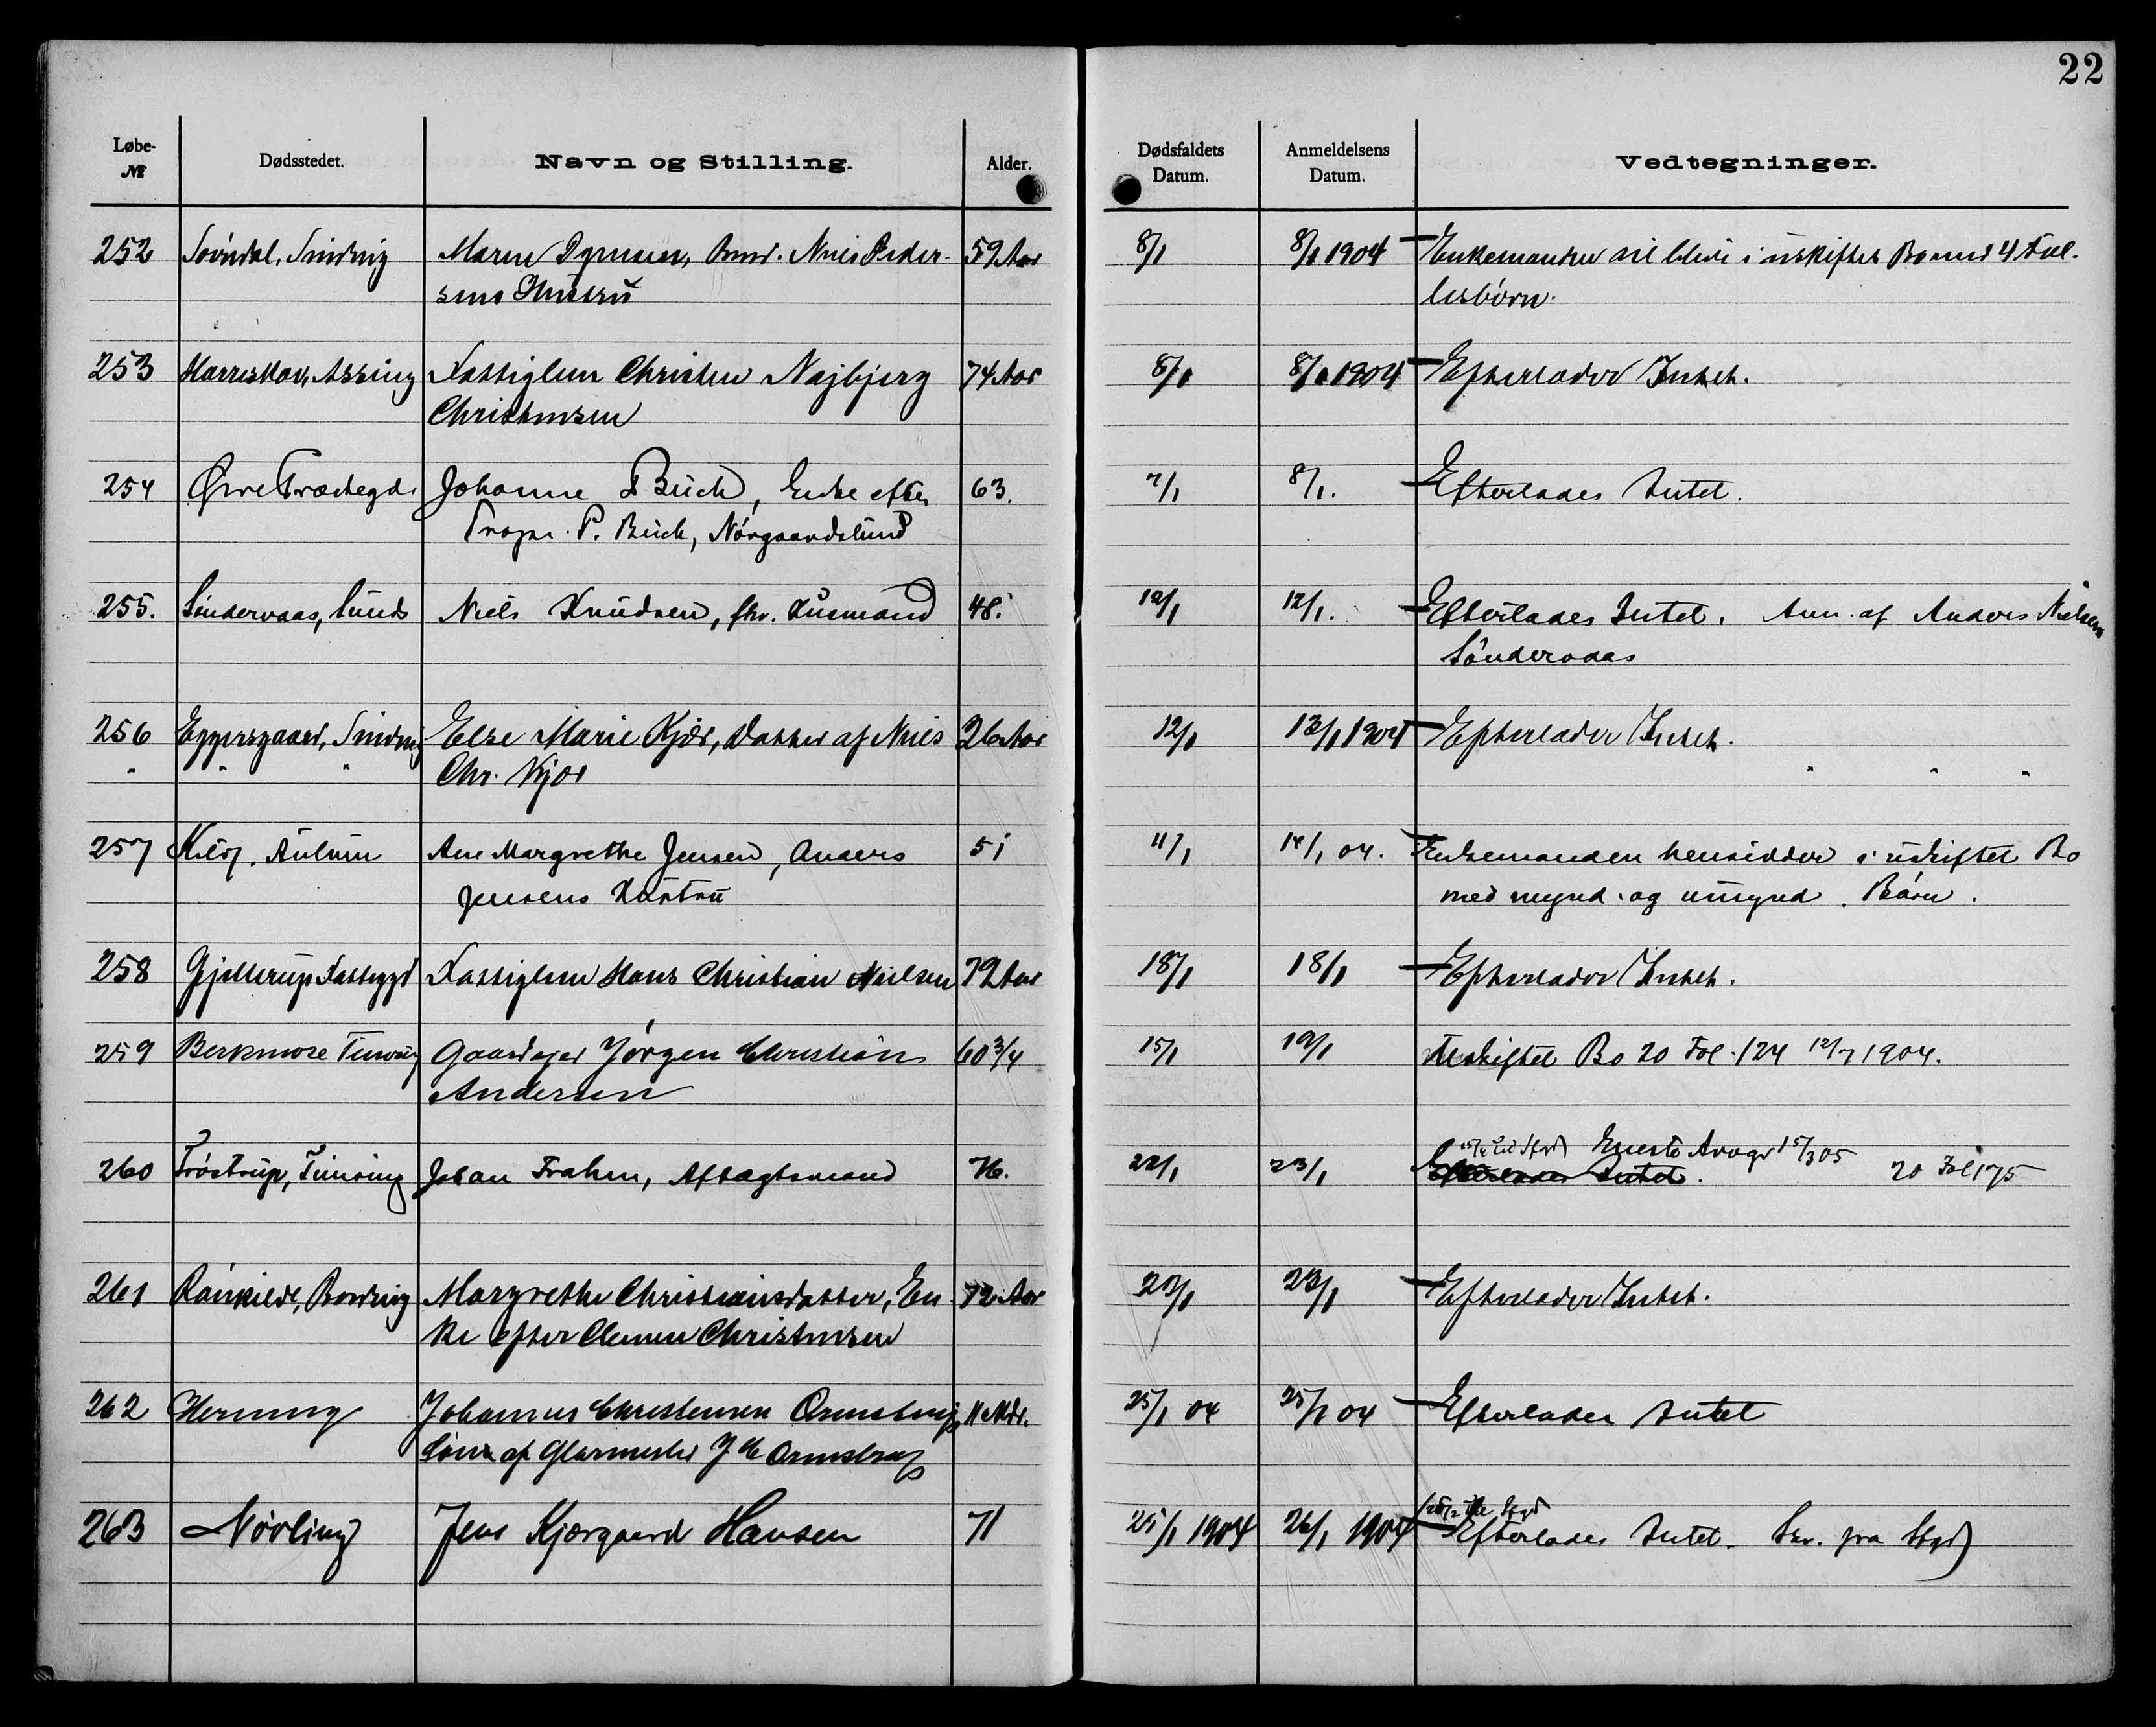 22
Løbe-№ Dødsstedet. Navn og Stilling. Alder. Dødsfaldets Datum. Anmeldelsens Datum. Vedtegninger.
252 Sinding Maren Niels Peder- 59 Aar 8/1 8/1 1904 Enkemanden vil blive i uskiftet Bo med 4 Fæl-
sens Hustru lesbørn.
253 Harreskov, Assing Fattiglem Christen Najbjerg 74 Aar 8/1 8/1 1904 Efterlader Intet.
Christensen
254 Johanne Buch, Enke efter 63. 7/1 8/1. Efterlades Intet.
Propr. P. Buch, Nørgaardslund
255. Søndervaas, Sunds Niels Knudsen, fhv. Husmand 48. 12/1 12/1. Efterlades Intet. Anm. af Anders Nielsen
Søndervaas
256 Eggersgaard, Sinding Else Marie Kjær, Datter af Niels 26 Aar 12/1 13/1 1904 Efterlader Intet.
" " " Chr. Kjær " " "
257 Aulum Ane Margrethe Jensen, Anders 51 11/1 14/1 04. Enkemanden hensidder i uskiftet Bo
Jensens Hustru med mynd. og umynd. Børn.
258 Gjellerup Fattiggd Fattiglem Hans Christian Nielsen 79 Aar 18/1 18/1 Efterlader Intet.
259 Berkmose Timring Gaardejer Jørgen Christian 60 3/4 15/1 19/1 Uskiftet Bo 20 Fol. 124 12/7 1904.
Andersen
Eneste Arvogr 15/3 05
260 Trøstrup, Timring Johan Frahm, Aftægtsmand 76. 22/1 23/1 Efterlades Intet. 20 Fol 175
261 Rønkilde, Bording Margrethe Christiansdatter, En- 72 Aar 23/1 23/1 Efterlader Intet.
ke efter Clemen Christensen
262 Herning Johannes Christensen Ormstrup, 11 Mdr. 25/1 04 25/1 04 Efterlader Intet
Søn af Glarmester J C Ormstrup
263 Nøvling Jens Kjærgaard Hansen 71 25/1 1904 26/1 1904 Efterlades Intet. Skr. fra Sfgd